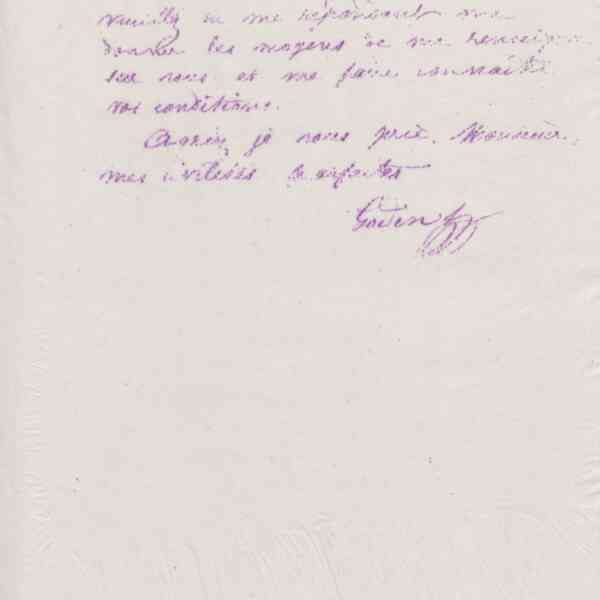 veuillez en me répondant me
donner les moyens de me renseigner
sur vous et me faire connaitre
vos conditions.
Agréez, je vous prie, Monsieur,
mes civilités parfaites
Godin